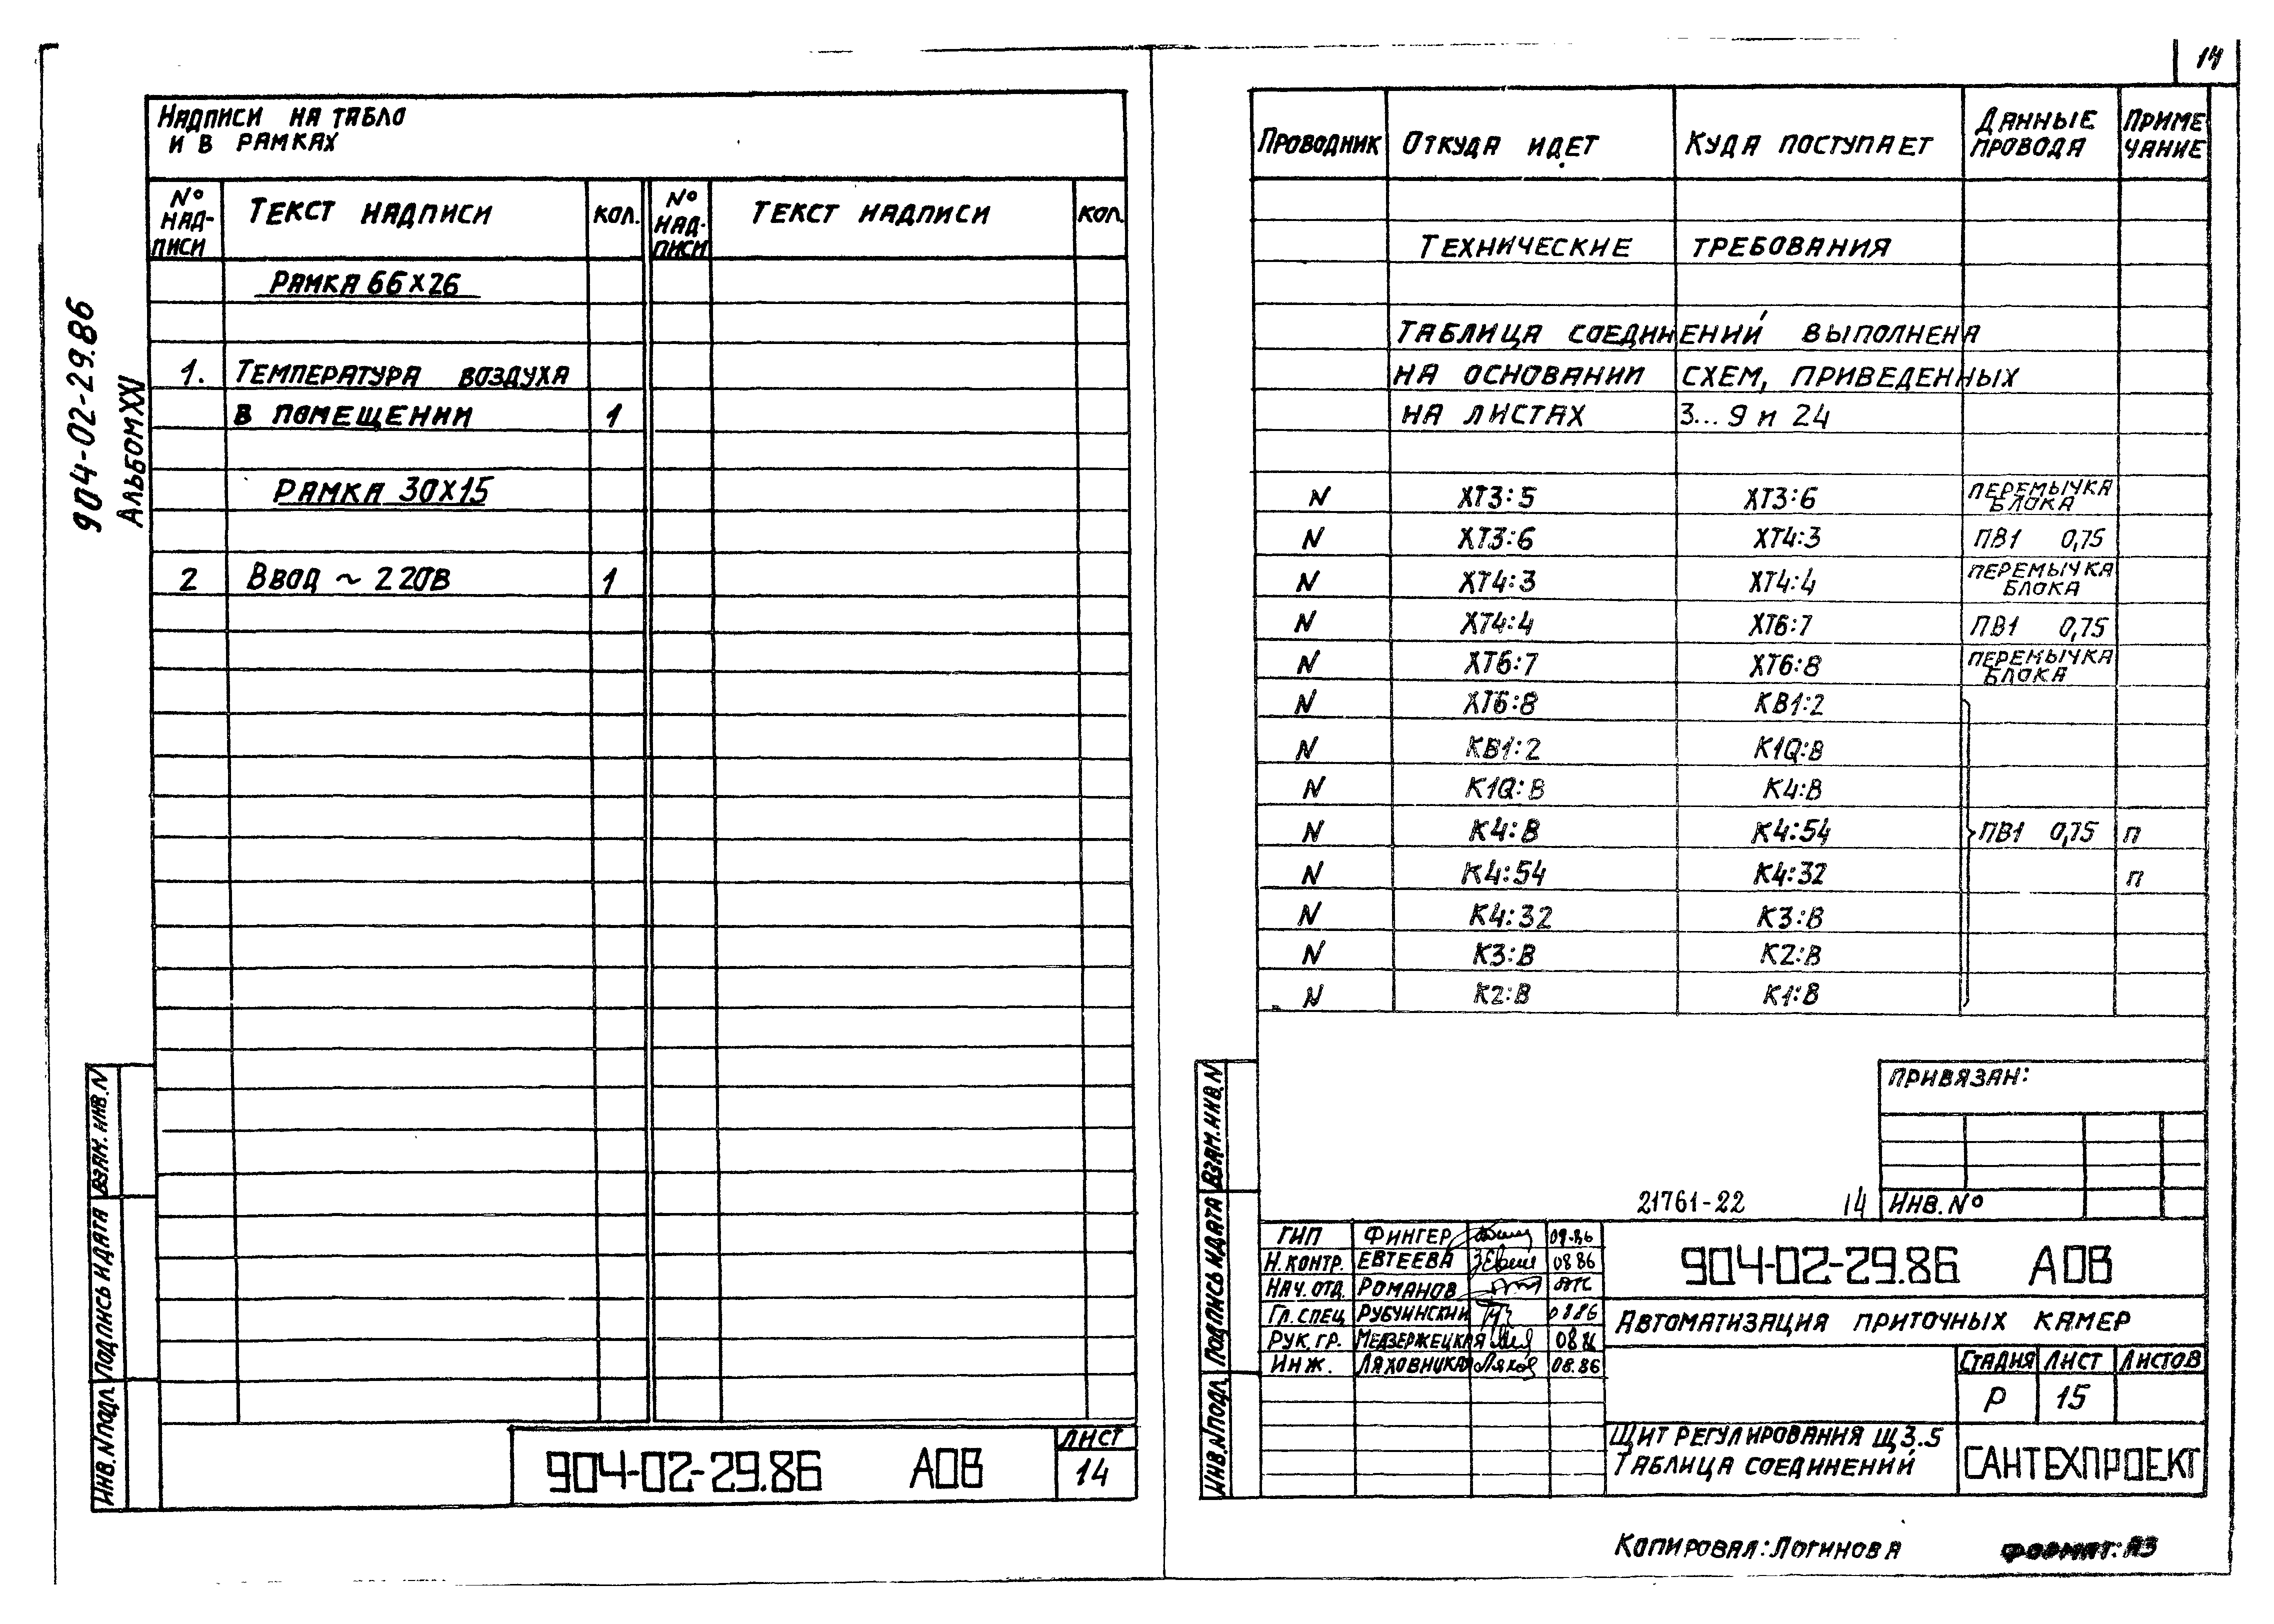 14
904-02-29.86
Альбом XXI
Надписи на табло
и в рамках
№ надписи Текст надписи кол. № надписи Текст надписи кол.
Рамка 66х26
1. Температура воздуха
в помещении 1
Рамка 30х15
2 Ввод ~ 220В 1
Взам. инв. N
Подпись и дата
Инв. N подл.
904-02-29.86 АОВ
Лист
14
Проводник Откуда идет Куда поступает Данные провода Примечание
Технические требования
Таблица соединений выполнена
на основании схем, приведенных
на листах 3...9 и 24
N ХТ3:5 ХТ3:6 перемычка блока
N ХТ3:6 ХТ4:3 ПВ1 0,75
N ХТ4:3 ХТ4:4 перемычка блока
N ХТ4:4 ХТ6:7 ПВ1 0,75
N ХТ6:7 ХТ6:8 перемычка блока
N ХТ6:8 КВ1:2
N КВ1:2 К1Q:В
N К1Q:В К4:В
N К4:В К4:54 ПВ1 0,75 п
N К4:54 К4:32 п
N К4:32 К3:В
N К3:В К2:В
N К2:В К1:В
Привязан:
Инв. №
21761-22 14
Взам. инв. N
Подпись и дата
Инв. N подл.
ГИП Фингер 09.86
Н. контр. Евтеева 08 86
Нач. отд. Романов
Гл. спец. Рубчинский 08 86
Рук. гр. Медзержецкая 08 86
Инж. Ляховницкая 08.86
904-02-29.86 АОВ
Автоматизация приточных камер
Стадия Лист Листов
Р 15
Щит регулирования Щ3.5
Таблица соединений
САНТЕХПРОЕКТ
Копировал: Логинова Формат: А3